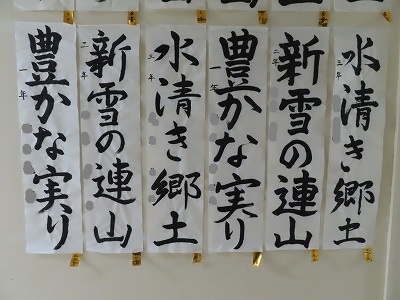 水清き郷土
三年
新雪の連山
二年
豊かな実り
一年
水清き郷土
三年
新雪の連山
二年
豊かな実り
一年